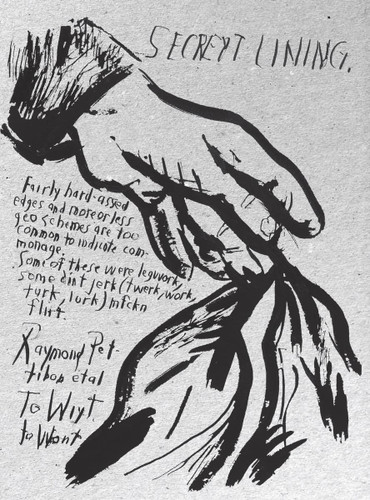 SECREYT LINING.
Fairly hard-assed
edges and moreorless
geo schemes are too
common to indicate com-
monage.
Some of these were legwork,
some dint jerk (twerk, work,
turk, lurk) mfckn
flirt
Raymond Pet-
tibon etal
To Wiyt.
to Wont